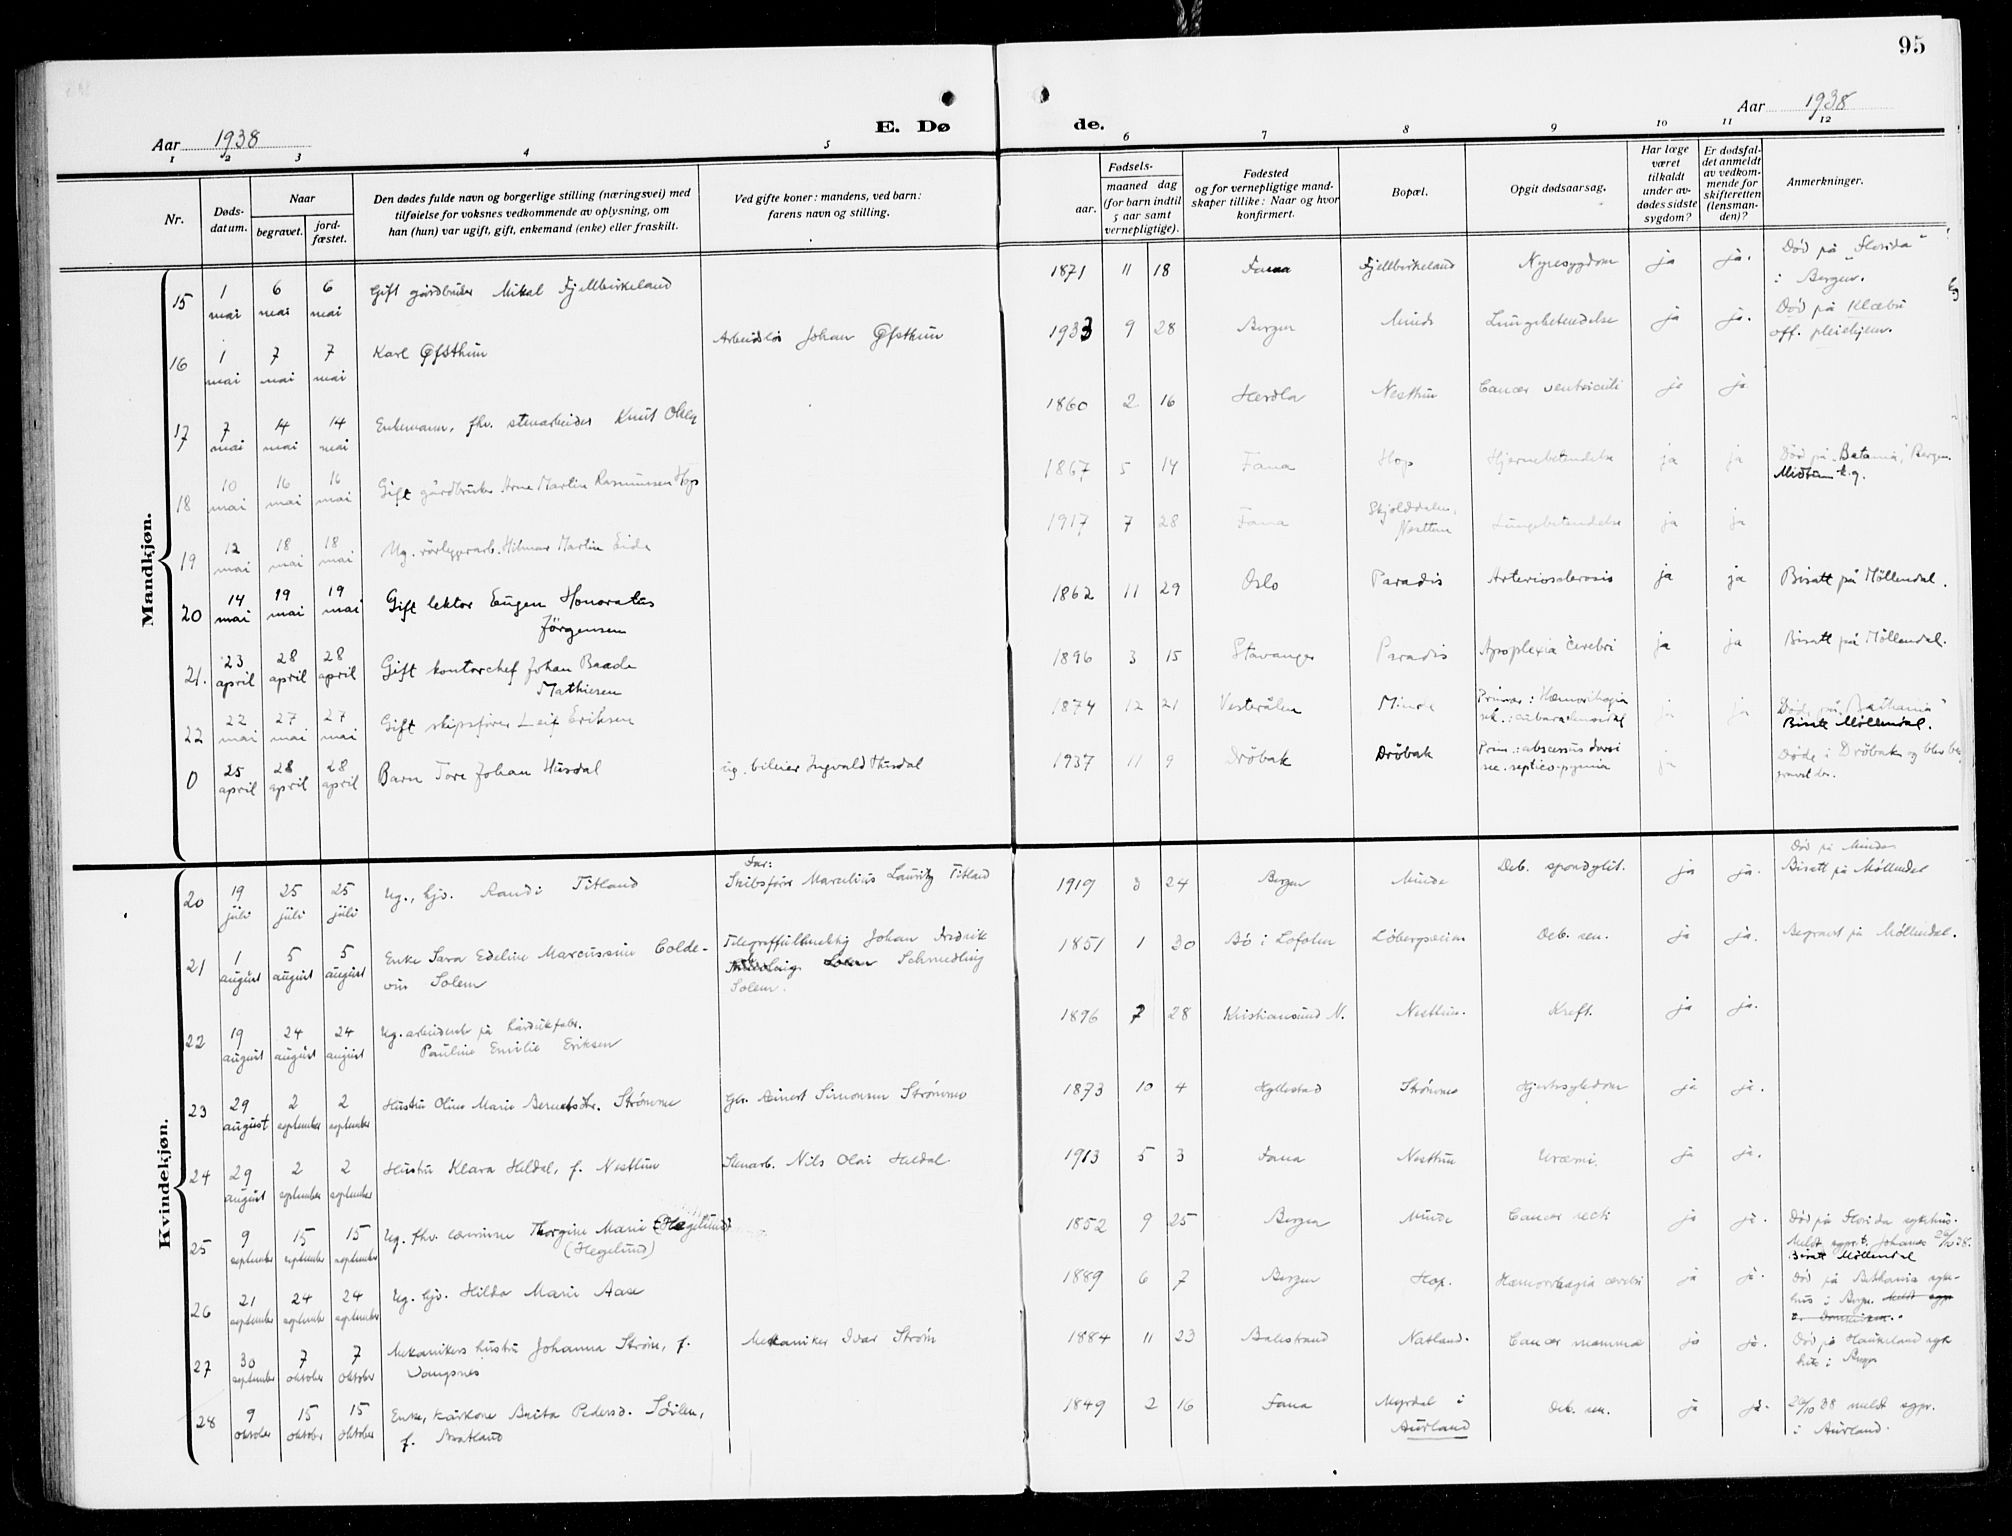 95
Aar 1938
E. Dø
de.
Aar 1938
1 2 3 4 5 6 7 8 9 10 11 12
Nr.
Døds-
datum.
Naar
begravet.
jord-
fæstet.
Den dødes fulde navn og borgerlige stilling (næringsvei) med
tilføielse for voksnes vedkommende av oplysning, om
han (hun) var ugift, gift, enkemand (enke) eller fraskilt.
Ved gifte koner: mandens, ved barn:
farens navn og stilling.
Fødsels-
aar.
maaned dag
(for barn indtil
5 aar samt
vernepligtige).
Fødested
og for vernepligtige mand-
skaper tillike: Naar og hvor
konfirmert.
Bopæl.
Opgit dødsaarsag.
Har læge
været
tilkaldt
under av-
dødes sidste
sygdom?
Er dødsfal-
det anmeldt
av vedkom-
mende for
skifteretten
(lensman-
den)?
Anmerkninger.
Mandkjøn.
15 1 mai 6 mai 6 mai Gift gårdbruker Mikal Fjellbirkeland 1871 11 18 Fana Fjellbirkeland Nyresygdom ja ja. Død på "Florida"
i Bergen.
16 1 mai 7 mai 7 mai Karl Øfsthun Arbeidsløs Johan Øfsthun 1933 9 28 Bergen Minde Lungebetendelse ja ja. Død på Klæbu
off. pleiehjem.
17 7 mai 14 mai 14 mai Enkemann, fhv. stenarbeider Knut Olsen 1860 2 16 Herdla Nesttun Cancer ventriculi ja ja
18 10 mai 16 mai 16 mai Gift gårdbruker Arne Martin Rasmussen Hop 1867 5 14 Fana Hop Hjernebetendelse ja ja Død på "Betania", Bergen.
Midtun k.g.
19 12 mai 18 mai 18 mai Ug. rørleggerarb. Hilmar Martin Eide 1917 7 28 Fana Skjolddalen,
Nesttun Lungebetendelse ja ja
20 14 mai 19 mai 19 mai Gift lektor Eugen Honoratus
Jørgensen 1862 11 29 Oslo Paradis Arteriosclerosis ja ja Bisatt på Møllendal.
21. 23 april 28 april 28 april Gift kontorchef Johan Baade
Mathiesen 1896 3 15 Stavanger Paradis Apoplexia cerebri ja ja Bisatt på Møllendal.
22 22 mai 27 mai 27 mai Gift skipsfører Leif Eriksen 1874 12 21 Vesterålen Minde Primær: Hæmorrhagia
ja ja Døde på "Bethania"
Bisatt Møllendal.
0 25 april 28 april 28 april Barn Tore Johan Husdal ug. bileier Ingvald Husdal 1937 11 9 Drøbak Drøbak Prim.: abscessus dorsi
sec. septico-pyemia ja Døde i Drøbak og blev be-
gravet der.
Kvindekjøn.
20 19 juli 25 juli 25 juli Ug., hjv. Randi Titland Far:
Skibsfører Marcelius Lauritz Titland 1919 3 24 Bergen Minde Deb. spondylit. ja ja. Død på Minde.
Bisatt på Møllendal
21 1 august 5 august 5 august Enke Sara Edeline Marcussine Colde-
vin Solem Johan Fredrik
Schmedling
Solem. 1851 1 30 Bø i Lofoten Deb. sen. ja ja. Begravet på Møllendal.
22 19 august 24 august 24 august Ug. arbeiderske på hårdukfabr.
Pauline Emilie Eriksen 1896 7 28 Kristiansund N. Nesttun. Kreft. ja ja.
23 29 august 2 september 2 september Hustru Oline Marie Berntsdtr. Strømme Gbr. Einert Simonsen Strømme 1873 10 4 Hyllestad Strømme Hjertesykdom ja ja.
24 29 august 2 september 2 september Hustru Klara Heldal, f. Nesttun Stenarb. Nils Olai Heldal 1913 5 3 Fana Nesttun Uræmi. ja ja.
25 9 september 15 september 15 september Ug. fhv. lærerinne Thorgine Marie (Hegelund)
(Hegelund) 1852 9 25 Bergen Minde Cancer recti ja ja. Død på Florida sykehus.
Meldt sogepr. t. Johannes 20/10 38.
Bisatt Møllendal
26 21 september 24 september 24 september Ug. hjv. Hilda Marie Aase 1889 6 7 Bergen Hop. Hæmorrhagia cerebri ja ja. Død på Bethania syke-
hus i Bergen. Meldt sogpr
t. Domkirken.
27 30 september 7 oktober 7 oktober Mekanikers hustru Johanna Strøm, f.
Vangsnes Mekaniker Ivar Strøm 1884 11 23 Balestrand Natland. Cancer mamma ja ja. Død på Haukeland syke-
hus i Bergen
28 9 oktober 15 oktober 15 oktober Enke, kårkone Brita Pedersd. Søilen,
f. Bratland 1849 2 16 Fana Myrdal i
Aurland Deb. sen. ja ja. 20/10 38 meldt sogpr.
i Aurland.